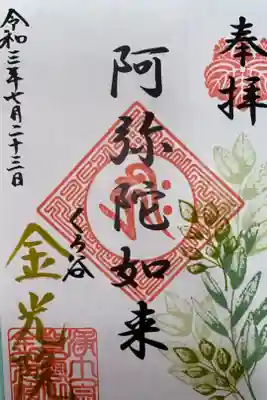 奉拝
阿弥陀如来
くろ谷
金光
令和三年七月二十三日